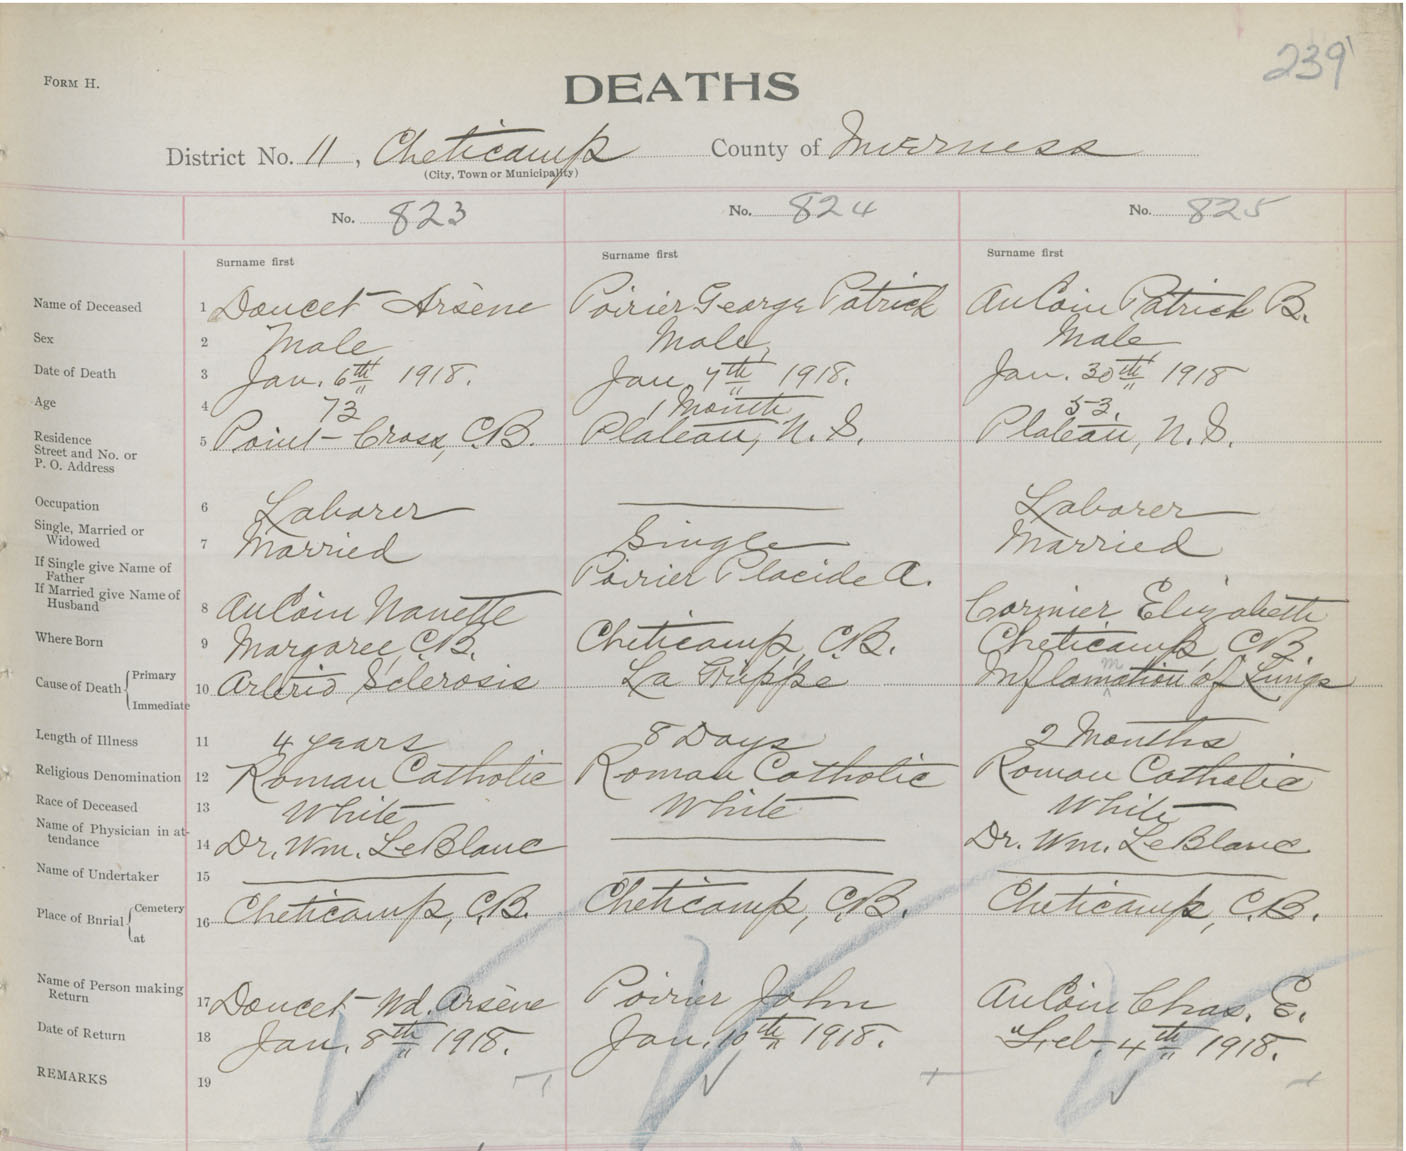 239
FORM H.
DEATHS
District No. 11, Cheticamp County of Inverness
(City, Town or Municipality)
No. 823 No. 824 No. 825
Surname first Surname first Surname first
Name of Deceased 1 Doucet Arsène Poirier George Patrick AuCoin Patrick B.
Sex 2 Male Male Male
Date of Death 3 Jan. 6th 1918. Jan. 7th 1918. Jan. 30th 1918
Age 4 73 1 Month 53.
Residence Street and No. or P. O. Address 5 Point-Cross, C.B. Plateau, N.S. Plateau, N.S.
Occupation 6 Laborer — Laborer
Single, Married or Widowed 7 Married Single Married
If Single give Name of Father Poirier Placide A.
If Married give Name of Husband 8 AuCoin Nanette Cormier Elizabeth
Where Born 9 Margaree C.B. Cheticamp, C.B. Cheticamp, C.B.
Cause of Death { Primary Immediate 10 Arterio Sclerosis La Grippe Inflammation of Lungs
Length of Illness 11 4 years 8 Days 2 Months
Religious Denomination 12 Roman Catholic Roman Catholic Roman Catholic
Race of Deceased 13 White White White
Name of Physician in attendance 14 Dr. Wm. LeBlanc — Dr. Wm. LeBlanc
Name of Undertaker 15 — — —
Place of Burial { Cemetery at 16 Cheticamp, C.B. Cheticamp, C.B. Cheticamp, C.B.
Name of Person making Return 17 Doucet Wd. Arsène Poirier John AuCoin Chas. E.
Date of Return 18 Jan. 8th 1918. Jan. 10th 1918. Feb. 4th 1918.
REMARKS 19